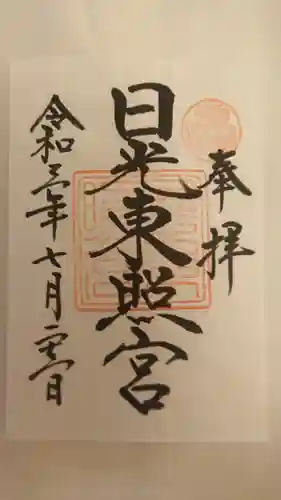 奉拝
日光東照宮
令和三年七月二四日